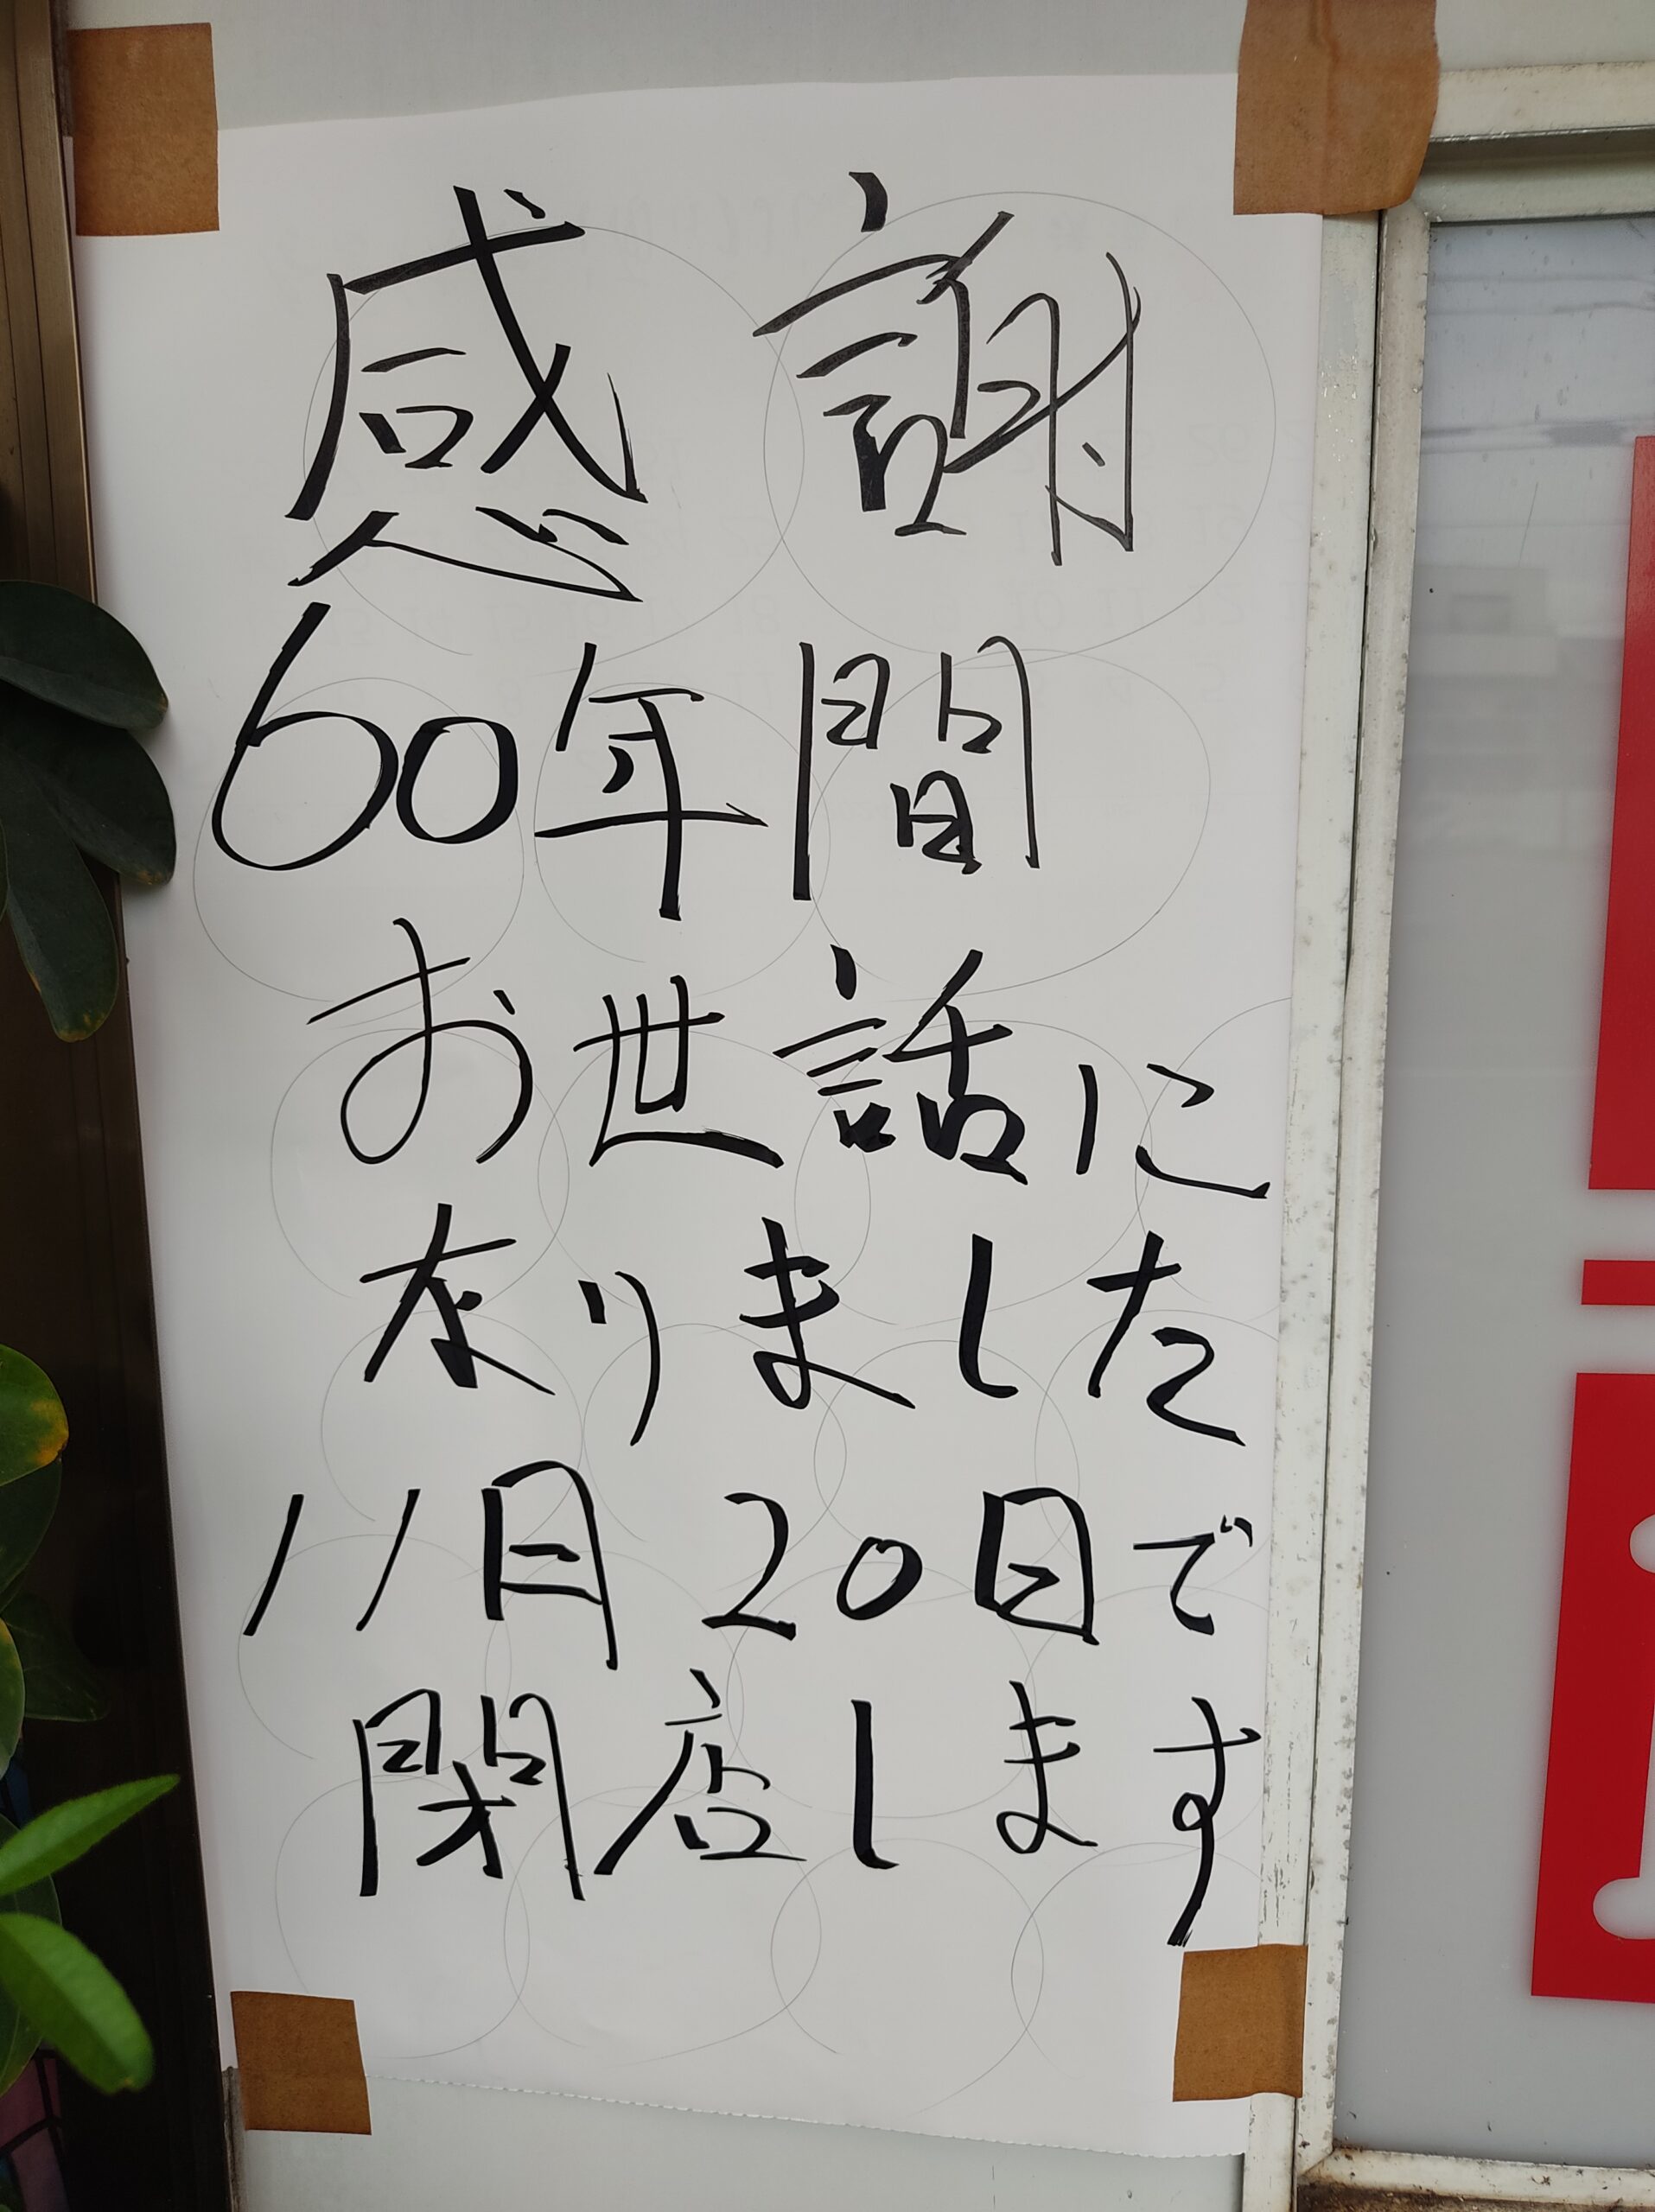 感謝
60年間
お世話に
なりました
11月20日で
閉店します